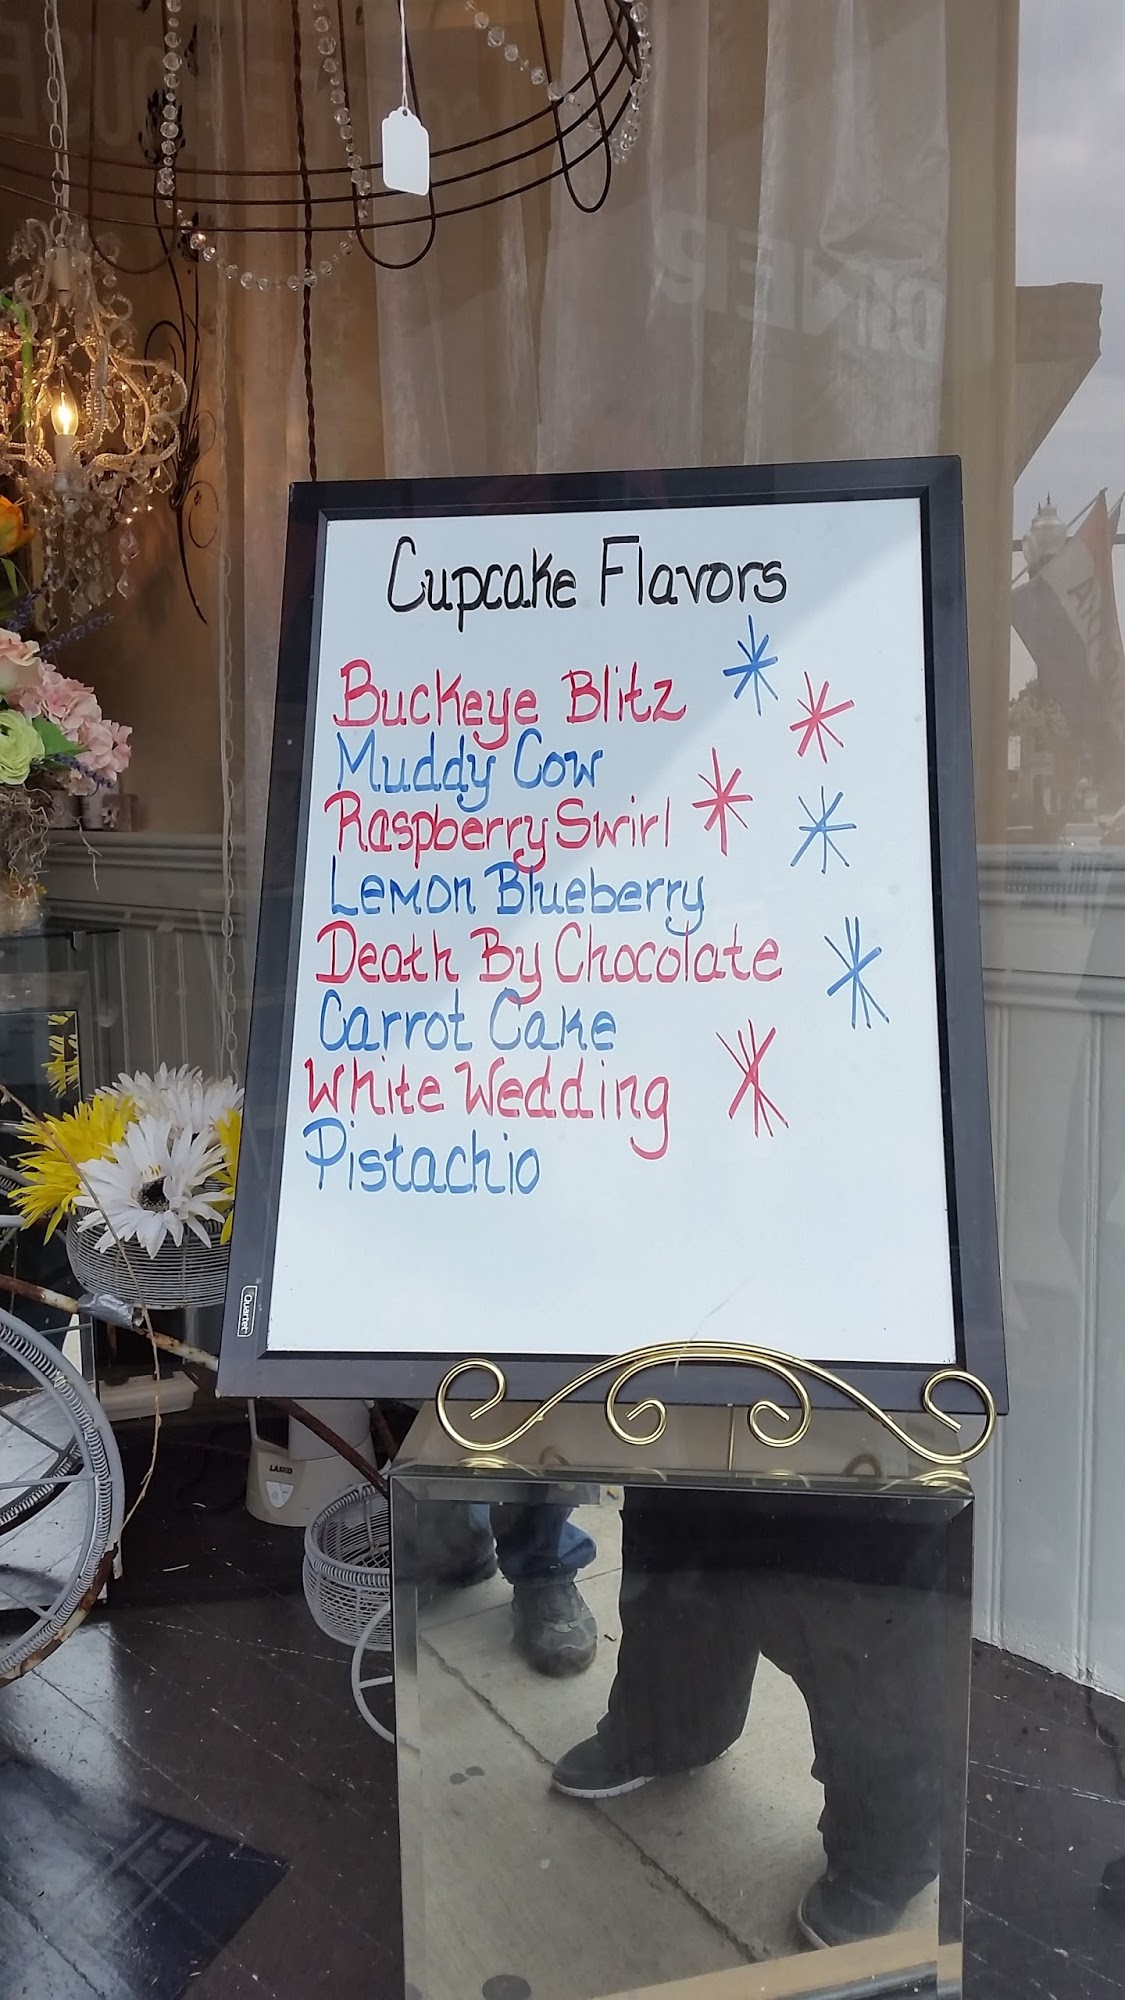 Cupcake Flavors
Buckeye Blitz
Muddy Cow
Raspberry Swirl
Lemon Blueberry
Death By Chocolate
Carrot Cake
White Wedding
Pistachio
Quartet
LASKO